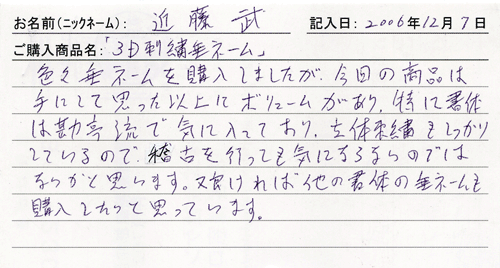 お名前(ニックネーム): 近藤 武 記入日: 2006年12月7日
ご購入商品名:「3D刺繍垂ネーム」
色々垂ネームを購入しましたが、今回の商品は
手にして思った以上にボリュームがあり、特に書体
は勘亭流で気に入っており、立体刺繍もしっかり
しているので、稽古を行っても気になるならのでは
ないかと思います。又良ければ他の書体の垂ネームも
購入したいと思っています。